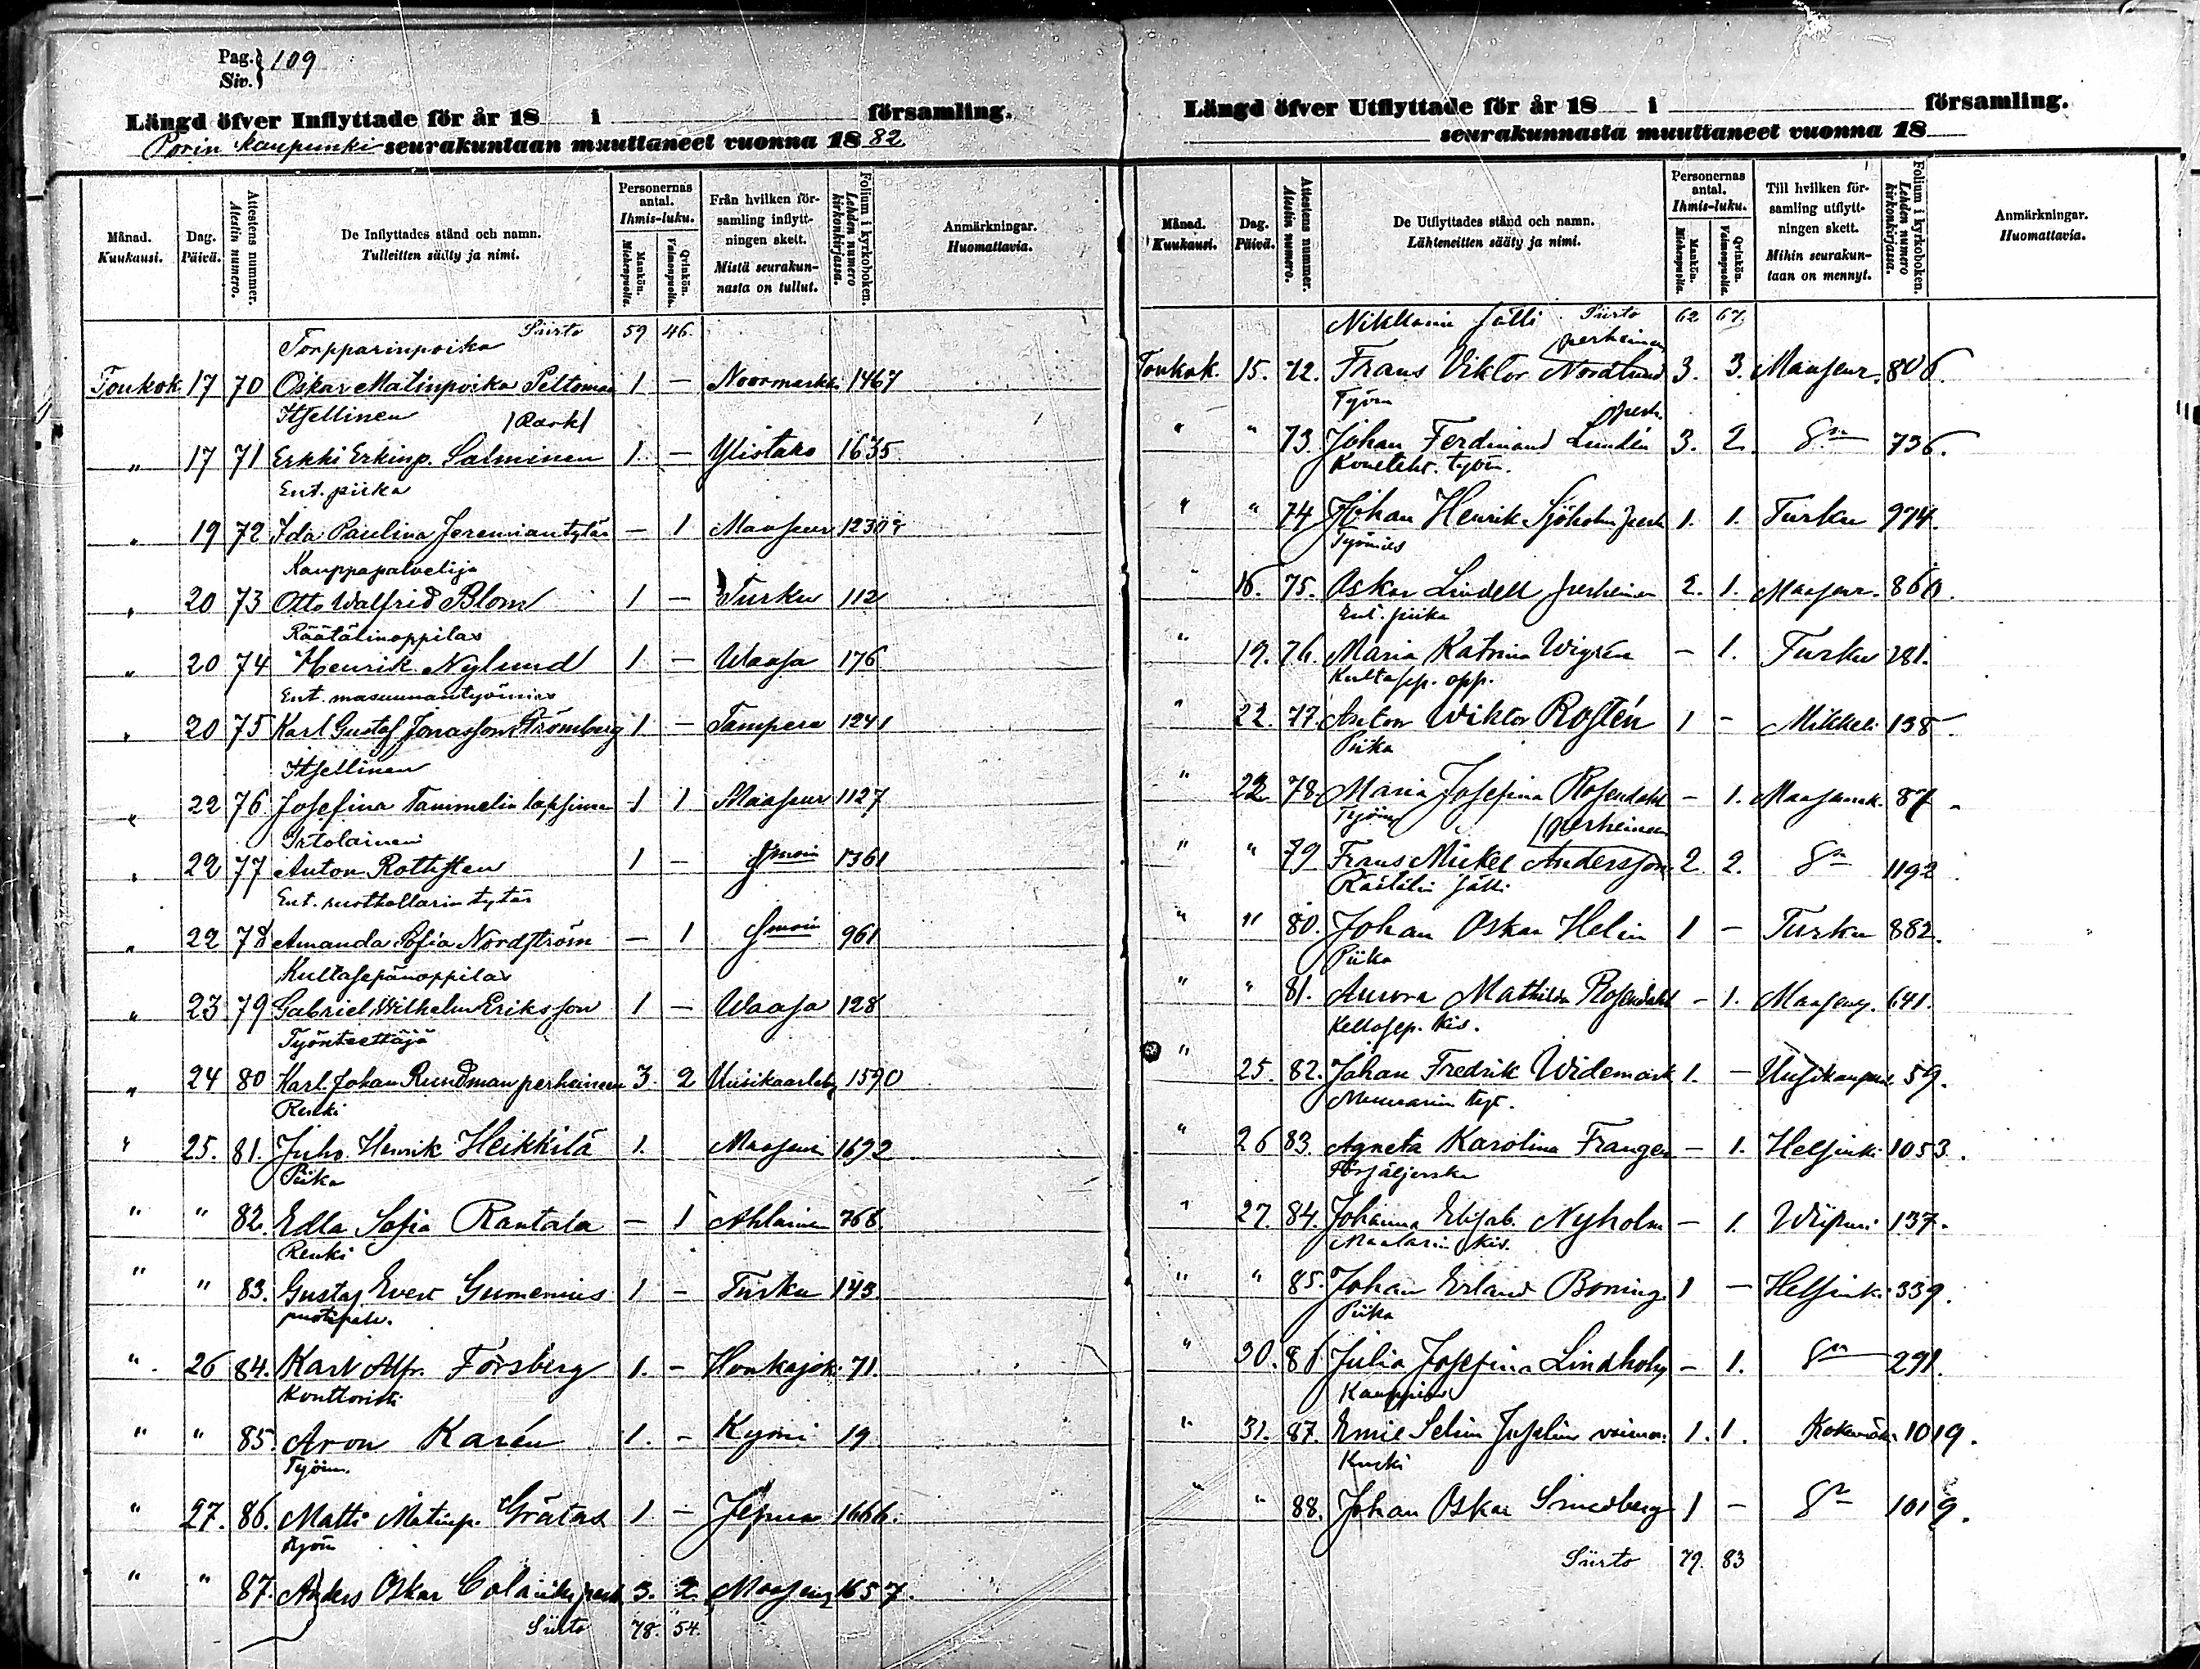 Pag. Siv. } 109
Längd öfver Inflyttade för år 18 i församling.
Porin kaupunki seurakuntaan muuttaneet vuonna 1882
Månad. Kuukausi.
Dag. Päivä.
Attestens nummer. Atestin numero.
De Inflyttades stånd och namn. Tulleitten sääty ja nimi.
Personernas antal. Ihmis-luku.
Mankön. Miehenpuolia.
Qvinkön. Vaimonpuolia.
Från hvilken församling inflyttningen skett. Mistä seurakunnasta on tullut.
Folium i kyrkoboken. Lehden numero kirkonkirjassa.
Anmärkningar. Huomattavia.
Siirto 59 46.
Torpparinpoika
Toukok. 17 70 Oskar Matinpoika Peltomaa 1 — Noormarkku 1467
Itsellinen
" 17 71 Erkki Erkinp. Salminen 1 — Ylistaro 1635
Ent. piika
" 19 72 Ida Paulina Jeremiantytär — 1 Maaseur 1230
Kauppapalvelija
" 20 73 Otto Walfrid Blom 1 — Turku 112
Räätälinoppilas
" 20 74 Henrik Nylund 1 — Waasa 176
Ent. masuunantyömies
" 20 75 Karl Gustaf Jonasson Strömberg 1 — Tampere 1241
Itsellinen
" 22 76 Josefina Tammelin lapsinee 1 1 Maaseur 1127
Irtolainen
" 22 77 Anton Rottsten 1 — 1361
Ent. tytär
" 22 78 Amanda Sofia Nordström — 1 961
Kultasepänoppilas
" 23 79 Gabriel Wilhelm Eriksson 1 — Waasa 128
Työnteettäjä
" 24 80 Karl Johan Rundman perheineen 3 2 Uusikaarleby 1590
Renki
" 25. 81. Juho Henrik Heikkilä 1. Maaseur 1692
Piika
" " 82. Edla Sofia Rantala — 1 Ahlainen 768.
Renki
" " 83. Gustaf Evert Gumenius 1 — Turku 143.
puotipalv.
" 26 84. Karl Alfr. Forsberg 1. — Honkajoki 71.
Konttoristi
" " 85. Aron Karén 1. — Kymi 19
Työm.
" 27. 86. Matti Matinp. Gråtas 1 — Jepua 1666.
Työm
" " 87. Anders Oskar perh 3. 2. Maaseur 1657.
Siirto 78. 54.
Längd öfver Utflyttade för år 18 i församling.
seurakunnasta muuttaneet vuonna 18
Månad. Kuukausi.
Dag. Päivä.
Attestens nummer. Atestin numero.
De Utflyttades stånd och namn. Lähteneitten sääty ja nimi.
Personernas antal. Ihmis-luku.
Mankön. Miehenpuolia.
Qvinkön. Vaimonpuolia.
Till hvilken församling utflyttningen skett. Mihin seurakuntaan on mennyt.
Folium i kyrkoboken. Lehden numero kirkonkirjassa.
Anmärkningar. Huomattavia.
Nikkarin sälli Siirto 62 67.
perheineen
Toukok. 15. 72. Frans Viktor Nordlund 3. 3. Maaseur. 806.
Työm perh.
" " 73. Johan Ferdinand Lundén 3. 2. 736.
Koneteht. työm.
" " 74 Johan Henrik Sjöholm perh 1. 1. Turku 974.
Työmies
" 16. 75. Oskar Lindell perheineen 2. 1. Maaseur. 860.
Ent. piika
" 19. 76. Maria Katrina Wigren — 1. Turku 281.
Kultasep. opp.
" 22. 77. Anton Wiktor Rostén 1 — Mikkeli 138
Piika
" 22. 78. Maria Josefina Rosendahl — 1. Maaseurak. 87
Työm perheineen
" " 79 Frans Mickel Andersson 2 2. 1192
Räätälin sälli
" " 80. Johan Oskar Helin 1 — Turku 882.
Piika
" " 81. Aurora Mathilda Rosendahl — 1. Maaseur. 641.
Kellosep. kis.
" 25. 82. Johan Fredrik Widemark 1. — Uusikaupunk 59.
Muurarin tyt.
" 26 83. Agneta Karolina Frangen — 1. Helsinki 1053.
Försäljerska
" 27. 84. Johanna Elisab. Nyholm — 1. Wiipuri 137.
Maalarin kis.
" " 85. Johan Erland Boning 1 — Helsinki 339.
Piika
" 30. 86 Julia Josefina Lindholm — 1. 291.
Kauppias
" 31. 87. Emil Selim vaimo. 1. 1. Kokemäki 1019.
Kuski
" " 88. Johan Oskar Smedberg 1 — 1019.
Siirto 79. 83